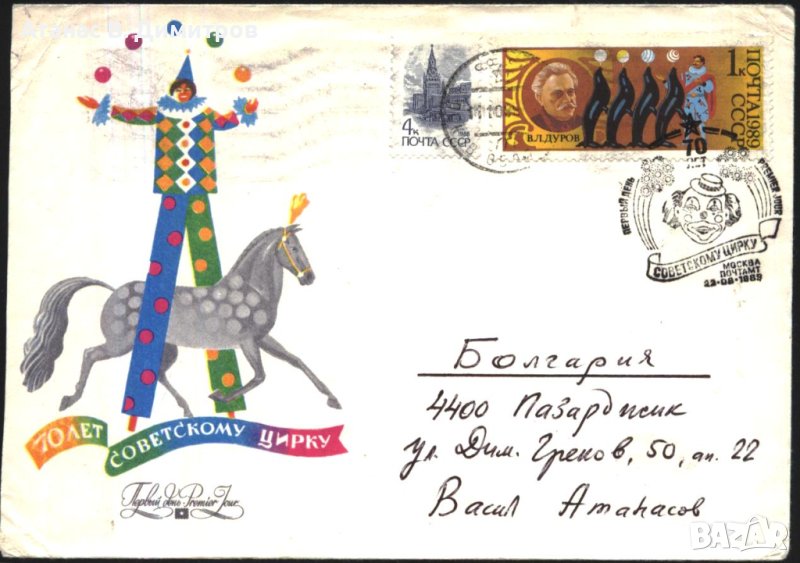 Атанас В. Димитров
4к
1988
ПОЧТА СССР
В.Л.ДУРОВ
1к
ПОЧТА 1989
СССР
70
ЛЕТ
ПЕРВЫЙ ДЕНЬ
PREMIER JOUR
СОВЕТСКОМУ ЦИРКУ
МОСКВА
ПОЧТАМТ
22-08-1989
70 ЛЕТ
СОВЕТСКОМУ ЦИРКУ
Первый день · Premier Jour
България
4400 Пазарджик
ул. Дим. Греков, 50, ап. 22
Васил Атанасов
BAZAR